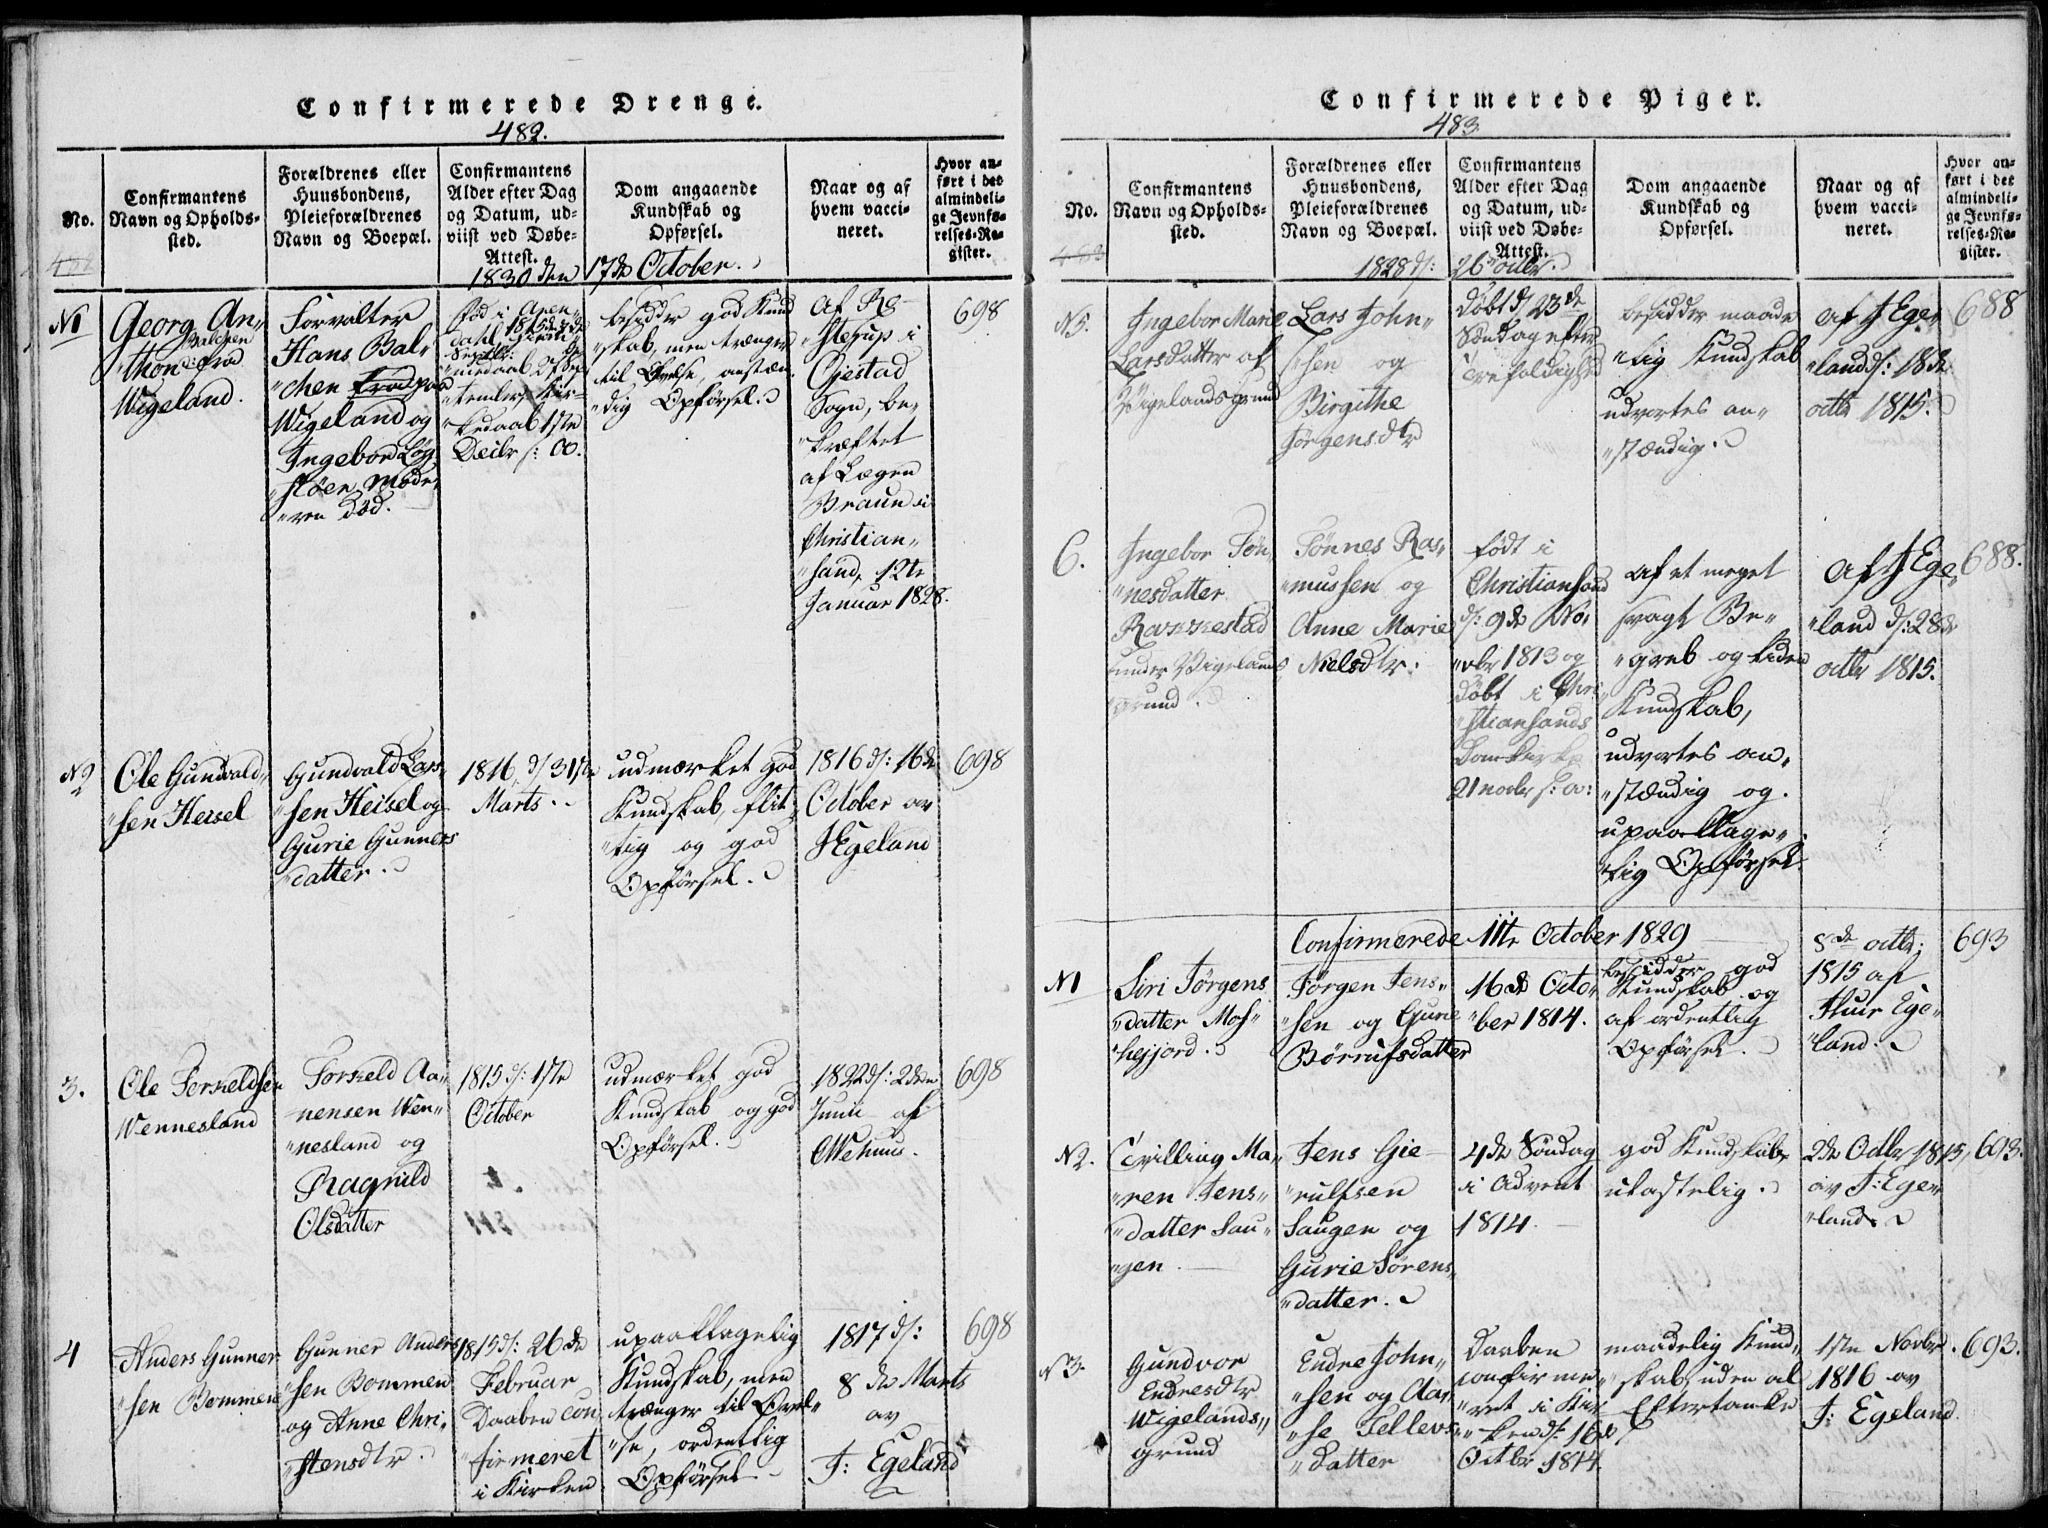 Confirmerede Drenge.
482.
No.
Confirmantens
Navn og Opholds-
sted.
Forældrenes eller
Huusbondens,
Pleieforældrenes
Navn og Boepæl.
Confirmantens
Alder efter Dag
og Datum, ud-
viist ved Døbe-
Attest.
Dom angaaende
Kundskab og
Opførsel.
Naar og af
hvem vacci-
neret.
Hvor an-
ført i det
almindeli-
ge Jevnfø-
relses-Re-
gister.
1830 den 17de October.
N1
Georg An„
Balchen
„thon fra
Wigeland.
Forvalter
Hans Bal„
„chen paa
Wigeland og
Ingebor Løg
„sløen Mode„
„ren død.
fød i
1815 d
Septbr:
Decbr s: A.
besidder god Kund
„skab, men trænger
til Øvelse, anstæn„
„dig Opførsel.
Af
„sterup i
Ojestad
Sogn, be„
„kræftet
af Lægen
Braun i
Christian„
„sand, 12te
Januar 1828.
698
N2
Ole Gundvald„
„sen Heisel
Gundvald Lars„
„sen Heisel og
Gurie Gunners
„datter.
1816, d/ 31te
Marts.
udmærket god
Kundskab, flit„
„tig og god
Opførsel.
1816 d/: 16de
October av
J Egeland
698
3.
Ole Terkeldsen
Wennesland
Torkeld Aa„
nensen Wen„
„nesland og
Ragnild
Olsdatter
1815 d/: 1ste
October
udmærket god
Kundskab og god
Opførsel.
1822 d/: 2den
Junii af
O Wehuus.
698
4
Anders Gunner
„sen Bommen
Gunner Anders
„sen Bommen
og Anne Chri„
„stensdtr.
1815 d/: 26de
Februar
Daaben con
„firmeret
i Kirken
upaaklagelig
Kundskab, men
trænger til Øvel„
„se, ordentlig
Opførsel
1817 d/:
8de Marts
av
J: Egeland
698
Confirmerede Piger.
483
No.
483
Confirmantens
Navn og Opholds-
sted.
Forældrenes eller
Huusbondens,
Pleieforældrenes
Navn og Boepæl.
Confirmantens
Alder efter Dag
og Datum, ud-
viist ved Døbe-
Attest.
Dom angaaende
Kundskab og
Opførsel.
Naar og af
hvem vacci-
neret.
Hvor an-
ført i det
almindeli-
ge Jevnfø-
relses-Re-
gister.
1828 d/: 26de octbr.
N5.
Ingebor Marie
Larsdatter af
Vigelands grund
Lars John„
„sen og
Birgithe
Jørgensdtr
Døbt d/ 23de
Søndag efter
Trefoldighed
besidder maade
„lig Kundskab
udvortes an„
„stændig.
af J Ege„
„land d/: 18de
octbr 1815.
688
6.
Ingebor Tøn„
„nesdatter
Ravnestad
under Vigelands
grund.
Tønnes Ras„
„mussen og
Anne Marie
Nielsdtr:
født i
Christiansand
d/: 9de No„
„vbr 1813 og
døbt i Chri„
„stiansands
Domkirke
21 novbr s: A:
af et meget
svagt Be„
„greb og liden
Kundskab,
udvortes an„
„stændig og
upaaklage„
„lig Opførsel.
Af J Ege„
„land d/: 28de
octbr 1815.
688.
Confirmerede 11te October 1829
N1
Siri Jørgens
„datter Mos„
„hejjord.
Jørgen Jens„
„sen og Gurie
Børrufsdatter
16de Octo„
„ber 1814.
besidder god
Kundskab og
af ordentlig
Opførsel.
8de octbr;
1815 af
Thuir Ege„
„land
693
N2.
Tvilling Ma„
„ren Jens„
„datter Sau„
„gen.
Jens Gie
„rulfsen
Saugen og
Gurie Sørens„
„datter.
4de Søndag
i Advent
1814
god Kundskab,
ulastelig.
2de Octbr 1815,
av J: Ege„
„land.
693.
N3.
Gundvor
Endresdtr
Wigelands„
grund
Endre John„
„sen og Aa„
„se Tellevs„
„datter
Daaben
confirme„
„ret i Kir„
„ken d/: 16de
Octbr 1814.
maadelig Kund„
„skab, uden al
Eftertanke
1ste Novbr.
1816 av
J: Egeland
693.